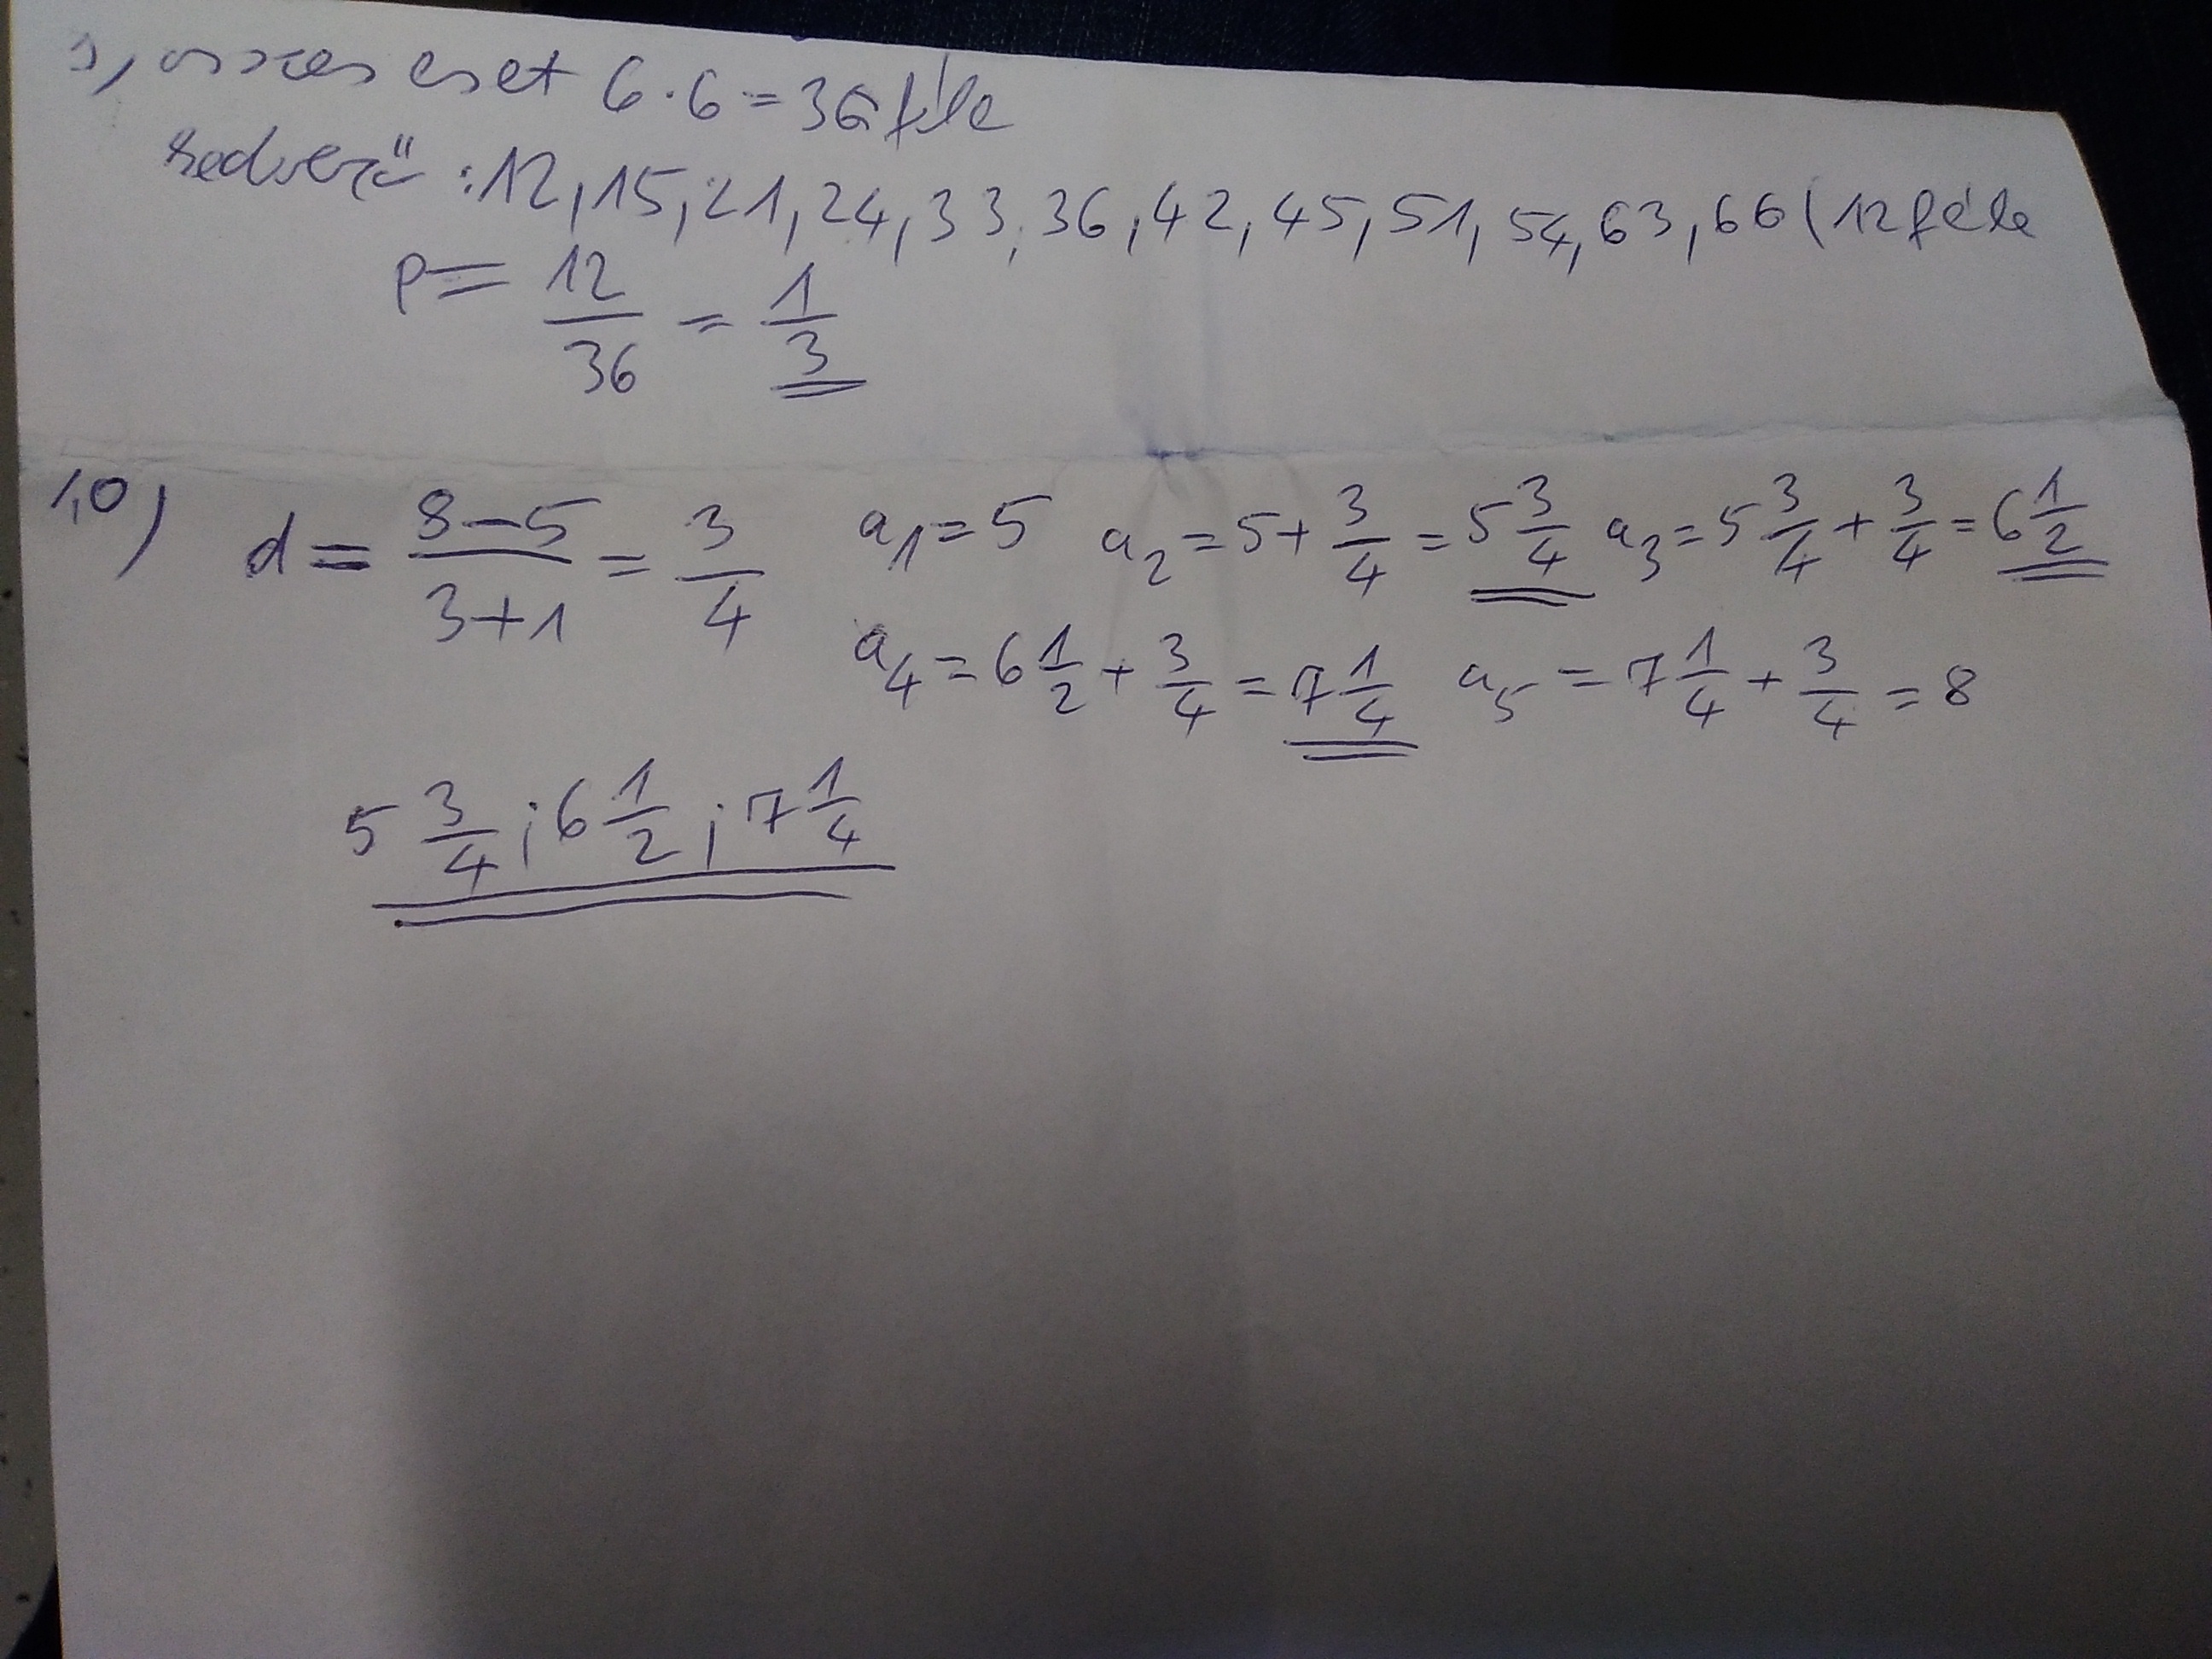 9, összes eset 6·6=36 féle
kedvező: 12, 15, 21, 24, 33, 36, 42, 45, 51, 54, 63, 66 (12 féle
P= 12/36 = 1/3
10) d = (8-5)/(3+1) = 3/4 a₁=5 a₂=5+3/4=5 3/4 a₃=5 3/4+3/4=6 1/2
a₄=6 1/2+3/4=7 1/4 a₅=7 1/4+3/4=8
5 3/4; 6 1/2; 7 1/4